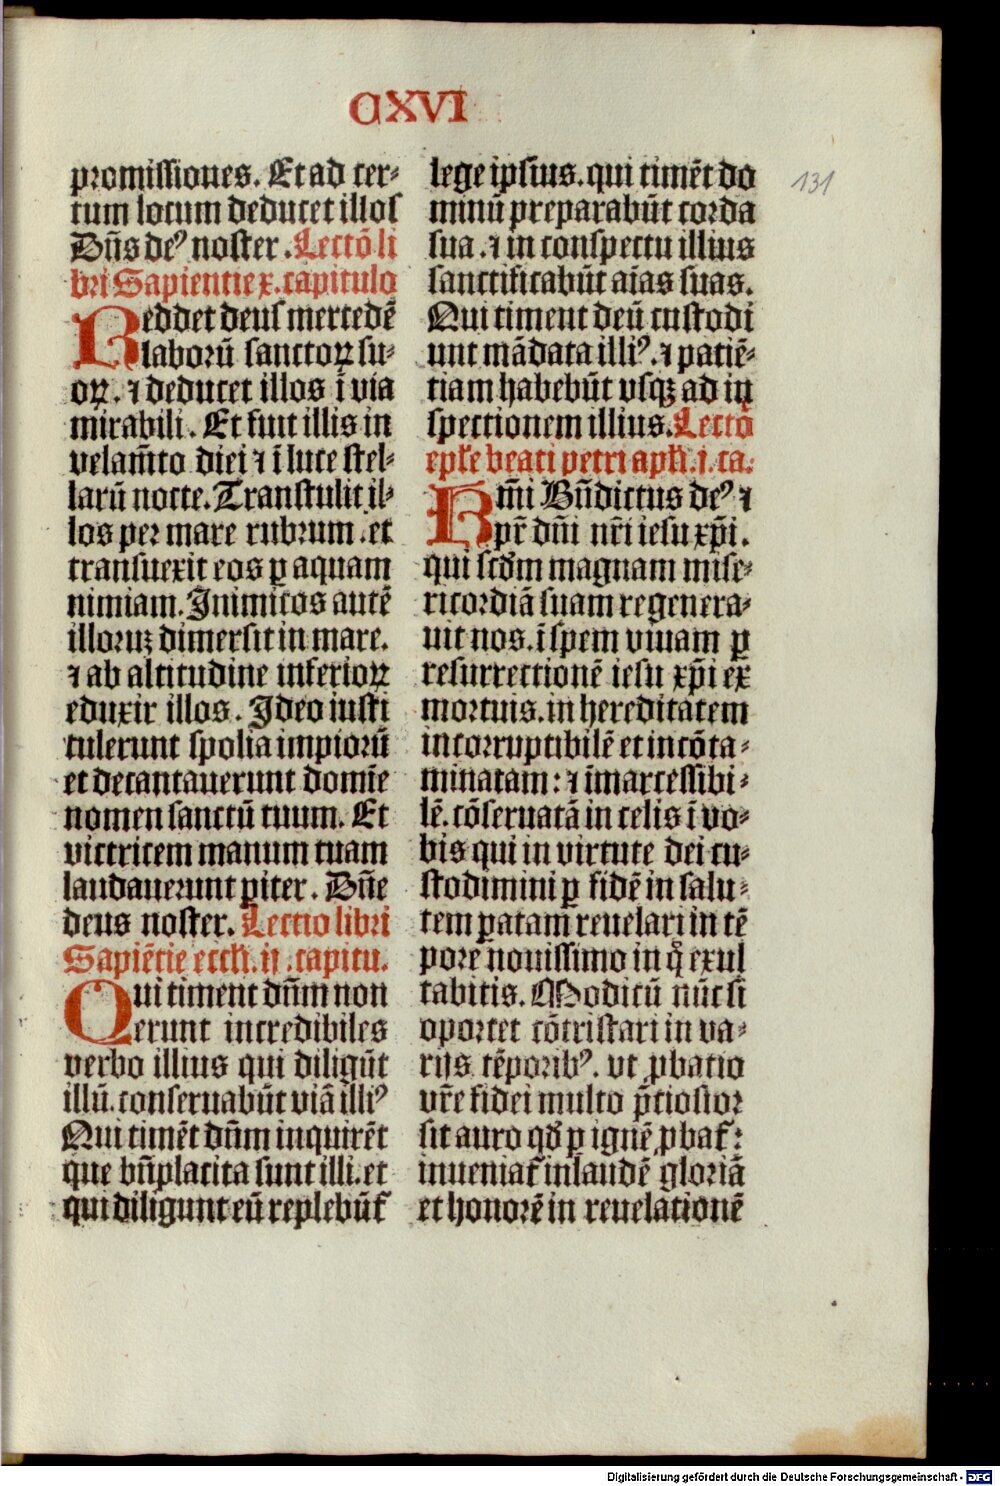 CXVI
promissiones. Et ad cer⸗
tum locum deducet illos
Dn̄s deꝰ noster. Lectō li
bri Sapientie x. capitulo
Reddet deus mercedē
laborū sanctoꝝ su⸗
oꝝ. ⁊ deducet illos ī via
mirabili. Et fuit illis in
velam̄to diei ⁊ ī luce stel⸗
larū nocte. Transtulit il⸗
los per mare rubrum. et
transuexit eos ꝑ aquam
nimiam. Inimicos autē
illoruꝫ dimersit in mare.
⁊ ab altitudine inferioꝝ
eduxit illos. Ideo iusti
tulerunt spolia impiorū
et decantauerunt domīe
nomen sanctū tuum. Et
victricem manum tuam
laudauerunt ꝑiter. Dn̄e
deus noster. Lectio libri
Sapiētie eccłi. ij. capitu.
Qui timent dn̄m non
erunt incredibiles
verbo illius qui diligūt
illū. conseruabūt viā illiꝰ
Qui timēt dn̄m inquirēt
que bn̄placita sunt illi. et
qui diligunt eū replebūt᷑
lege ipsius. qui timēt do
minū preparabūt corda
sua. ⁊ in conspectu illius
sanctificabūt aīas suas.
Qui timent deū custodi
unt mādata illiꝰ. ⁊ patiē⸗
tiam habebūt vsqꝫ ad in
spectionem illius. Lectō
epłe beati petri apłi. j. ca.
Rm̄i Bn̄dictus deꝰ ⁊
pr̄ dn̄i nr̄i iesu xp̄i.
qui scd̄m magnam mise⸗
ricordiā suam regenera⸗
uit nos. ī spem viuam ꝑ
resurrectionē iesu xp̄i ex
mortuis. in hereditatem
incorruptibilē et incōta⸗
minatam: ⁊ īmarcessibi⸗
lē. cōseruatā in celis ī vo⸗
bis qui in virtute dei cu⸗
stodimini ꝑ fidē in salu⸗
tem ꝑatam reuelari in tē
pore nouissimo in q̊ exul
tabitis. Modicū nūc si
oportet cōtristari in va⸗
rijs tēporibꝰ. vt ꝓbatio
vr̄e fidei multo p̄ciosior
sit auro qd̄ ꝑ ignē ꝓbat᷑:
inueniat᷑ in laudē gloriā
et honorē in reuelationē
131
Digitalisierung gefördert durch die Deutsche Forschungsgemeinschaft - DFG